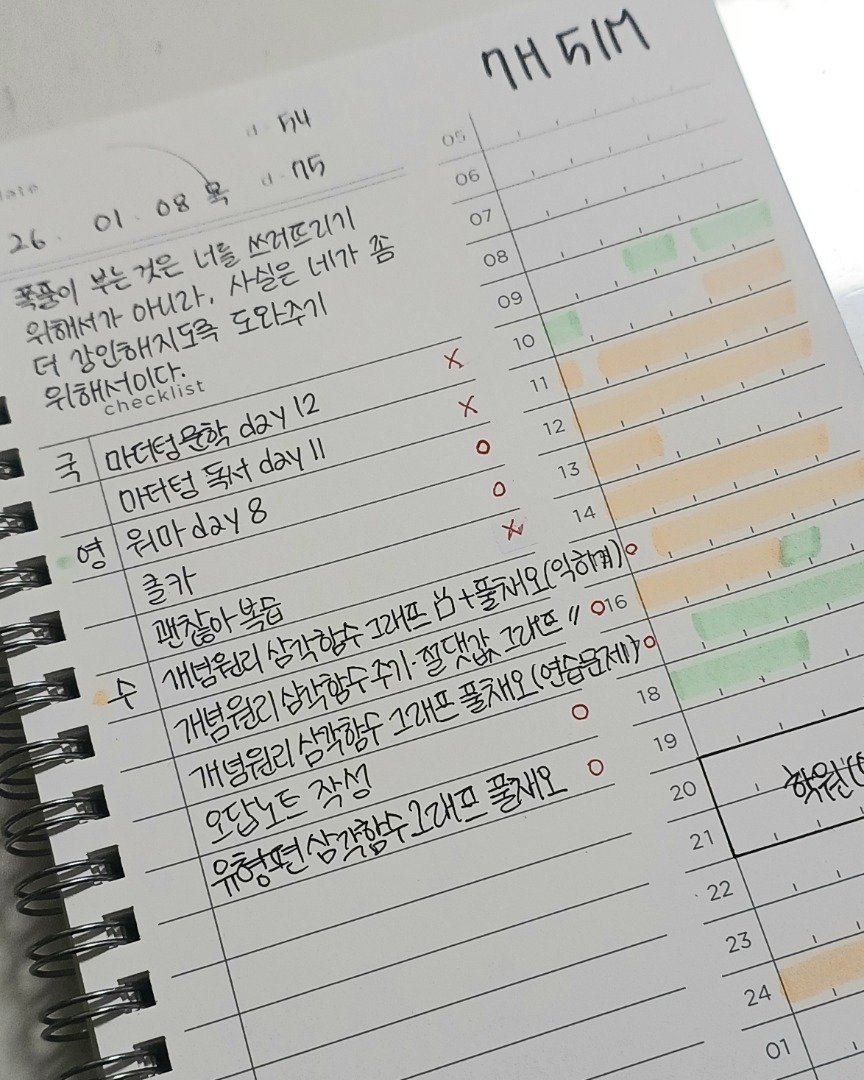 7H 51M
d - 54
date
d - 75
26. 01. 08 목
폭풍이 부는 것은 너를 쓰러뜨리기
위해서가 아니라, 사실은 네가 좀
더 강인해지도록 도와주기
위해서이다.
checklist
국 마더텅문학 day 12 X
마더텅 독서 day 11 X
영 워마 day 8 O
클카 O
괜찮아 복습 X
수 개념원리 삼각함수 그래프 +풀채오(익히계) O
개념원리 삼각함수 주기·절댓값 그래프 〃 O
개념원리 삼각함수 그래프 풀채오(연습문제) O
오답노트 작성 O
유형편 삼각함수 그래프 풀채오 O
05
06
07
08
09
10
11
12
13
14
16
18
19
20 학원
21
22
23
24
01